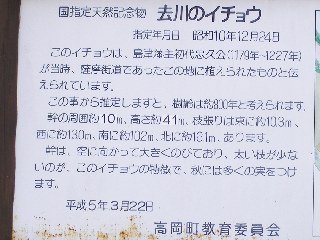 国指定天然記念物 去川のイチョウ
指定年月日 昭和10年12月24日
このイチョウは、島津藩主初代忠久公(1179年~1227年)
が当時、薩摩街道であったこの地に植えられたものと伝
えられています。
この事から推定しますと、樹齢は約800年と考えられます。
幹の周囲約10m、高さ約41m、枝張りは東に10.3m、
西に13.0m、南に10.2m、北に16.1m、あります。
幹は、空に向かって大きくのびており、太い枝が少な
いのが、このイチョウの特徴で、秋には多くの実をつけ
ます。
平成5年3月22日
高岡町教育委員会